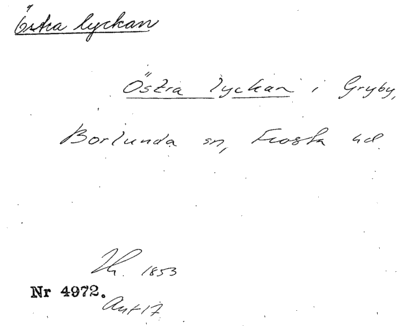 Östra lyckan
Östra lyckan i Gryby,
Borlunda sn, Frosta hd.
1853
Nr 4972.
Ant 17